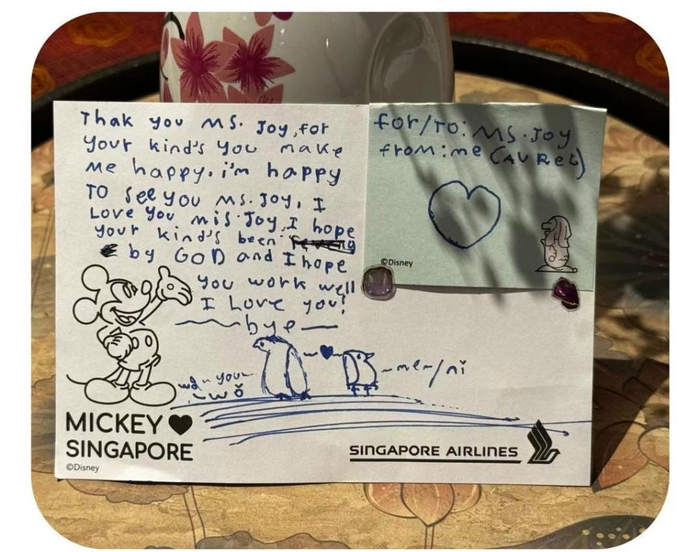 Thak you MS. Joy, for
your kind's you make
me happy, i'm happy
TO see you ms. Joy, I
Love you mis. Joy, I hope
your kind's been
by GOD and I hope
you work well
I Love you!
bye
you
me/ni
MICKEY ♥
SINGAPORE
©Disney
SINGAPORE AIRLINES
for/TO: MS. JOY
from: me (AUREL)
©Disney